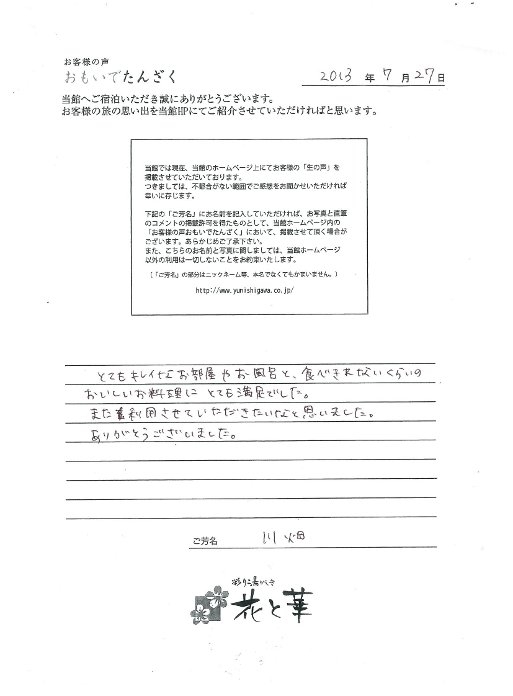 お客様の声
おもいでたんざく
2013 年 7 月 27 日
当館へご宿泊いただき誠にありがとうございます。
お客様の旅の思い出を当館HPにてご紹介させていただければと思います。
当館では現在、当館のホームページ上にてお客様の「生の声」を
掲載させていただいております。
つきましては、不都合がない範囲でご感想をお聞かせいただければ
幸いに存じます。
下記の「ご芳名」にお名前を記入していただければ、お写真と直筆
のコメントの掲載許可を得たものとして、当館ホームページ内の
「お客様の声おもいでたんざく」において、掲載させて頂く場合が
ございます。あらかじめご了承下さい。
また、こちらのお名前と写真に関しましては、当館ホームページ
以外の利用は一切しないことをお約束いたします。
(「ご芳名」の部分はニックネーム等、本名でなくてもかまいません。)
http://www.yunishigawa.co.jp/
とてもキレイなお部屋やお風呂と、食べきれないくらいの
おいしいお料理に とても満足でした。
また利用させていただきたいなと思いました。
ありがとうございました。
ご芳名 川畑
彩り湯かしき
花と華